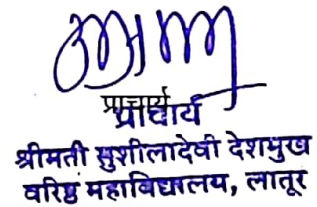 प्राचार्य
प्राचार्य
श्रीमती सुशीलादेवी देशमुख
वरिष्ठ महाविद्यालय, लातूर